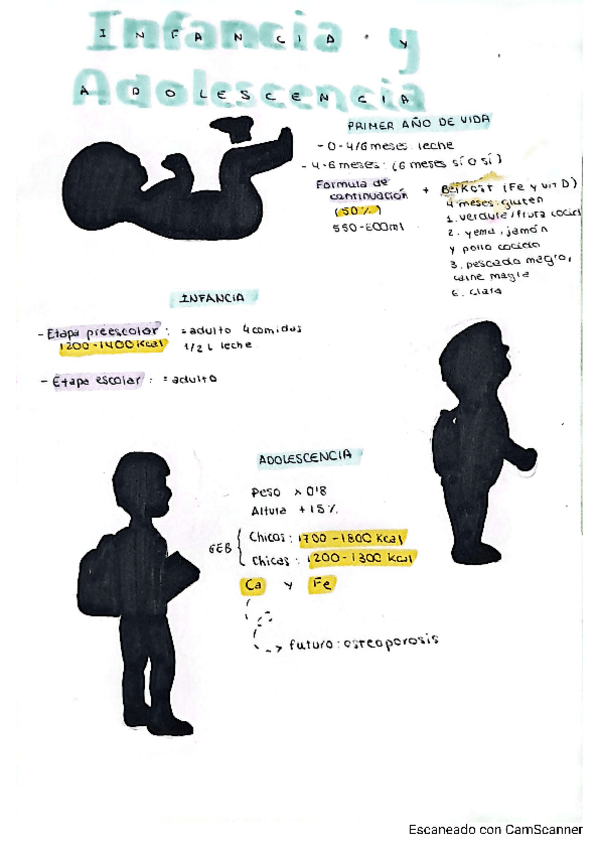 Infancia y
Adolescencia
INFANCIA Y
ADOLESCENCIA
PRIMER AÑO DE VIDA
- 0-4/6 meses: leche
- 4-6 meses: (6 meses sí o sí)
Formula de continuación
(50%)
550-600ml
+ Beikost (Fe y vit D)
4 meses: gluten
1. verdura/fruta cocid
2. yema, jamón
y pollo cocido
3. pescado magro,
carne magra
6. clara
INFANCIA
- Etapa preescolar: = adulto 4 comidas
1200-1400 Kcal 1/2 L leche
- Etapa escolar: = adulto
ADOLESCENCIA
Peso x 0'8
Altura + 15%
GEB { Chicos: 1700-1800 Kcal
Chicas: 1200-1300 Kcal
Ca y Fe
futuro: osteoporosis
Escaneado con CamScanner